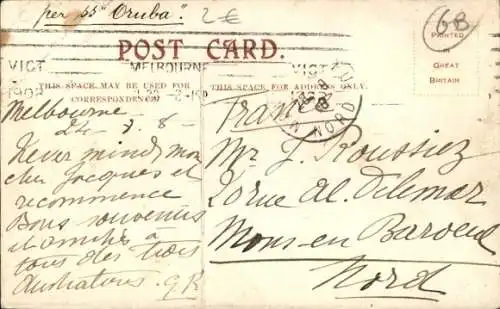 per SS "Oruba".
2€
68
POST CARD.
PRINTED
IN
GREAT
BRITAIN
VICT MELBOURNE VICT
1908
THIS SPACE MAY BE USED FOR
CORRESPONDENCE
THIS SPACE FOR ADDRESS ONLY.
NORD
Melbourne
24-7-8-
Never mind mon
cher Jacques et
recommence
Bons souvenirs
et amitiés à
tous des trois
G R
France
Mr J. Roussiez
rue
Mons-en Baroeul
Nord